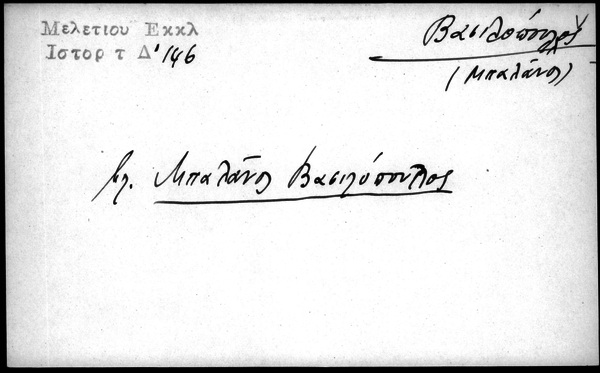 Μελετίου Εκκλ
Ιστορ τ Δ' 146
Βασιλόπουλος
(Μπαλάνος)
βλ. Μπαλάνος Βασιλόπουλος